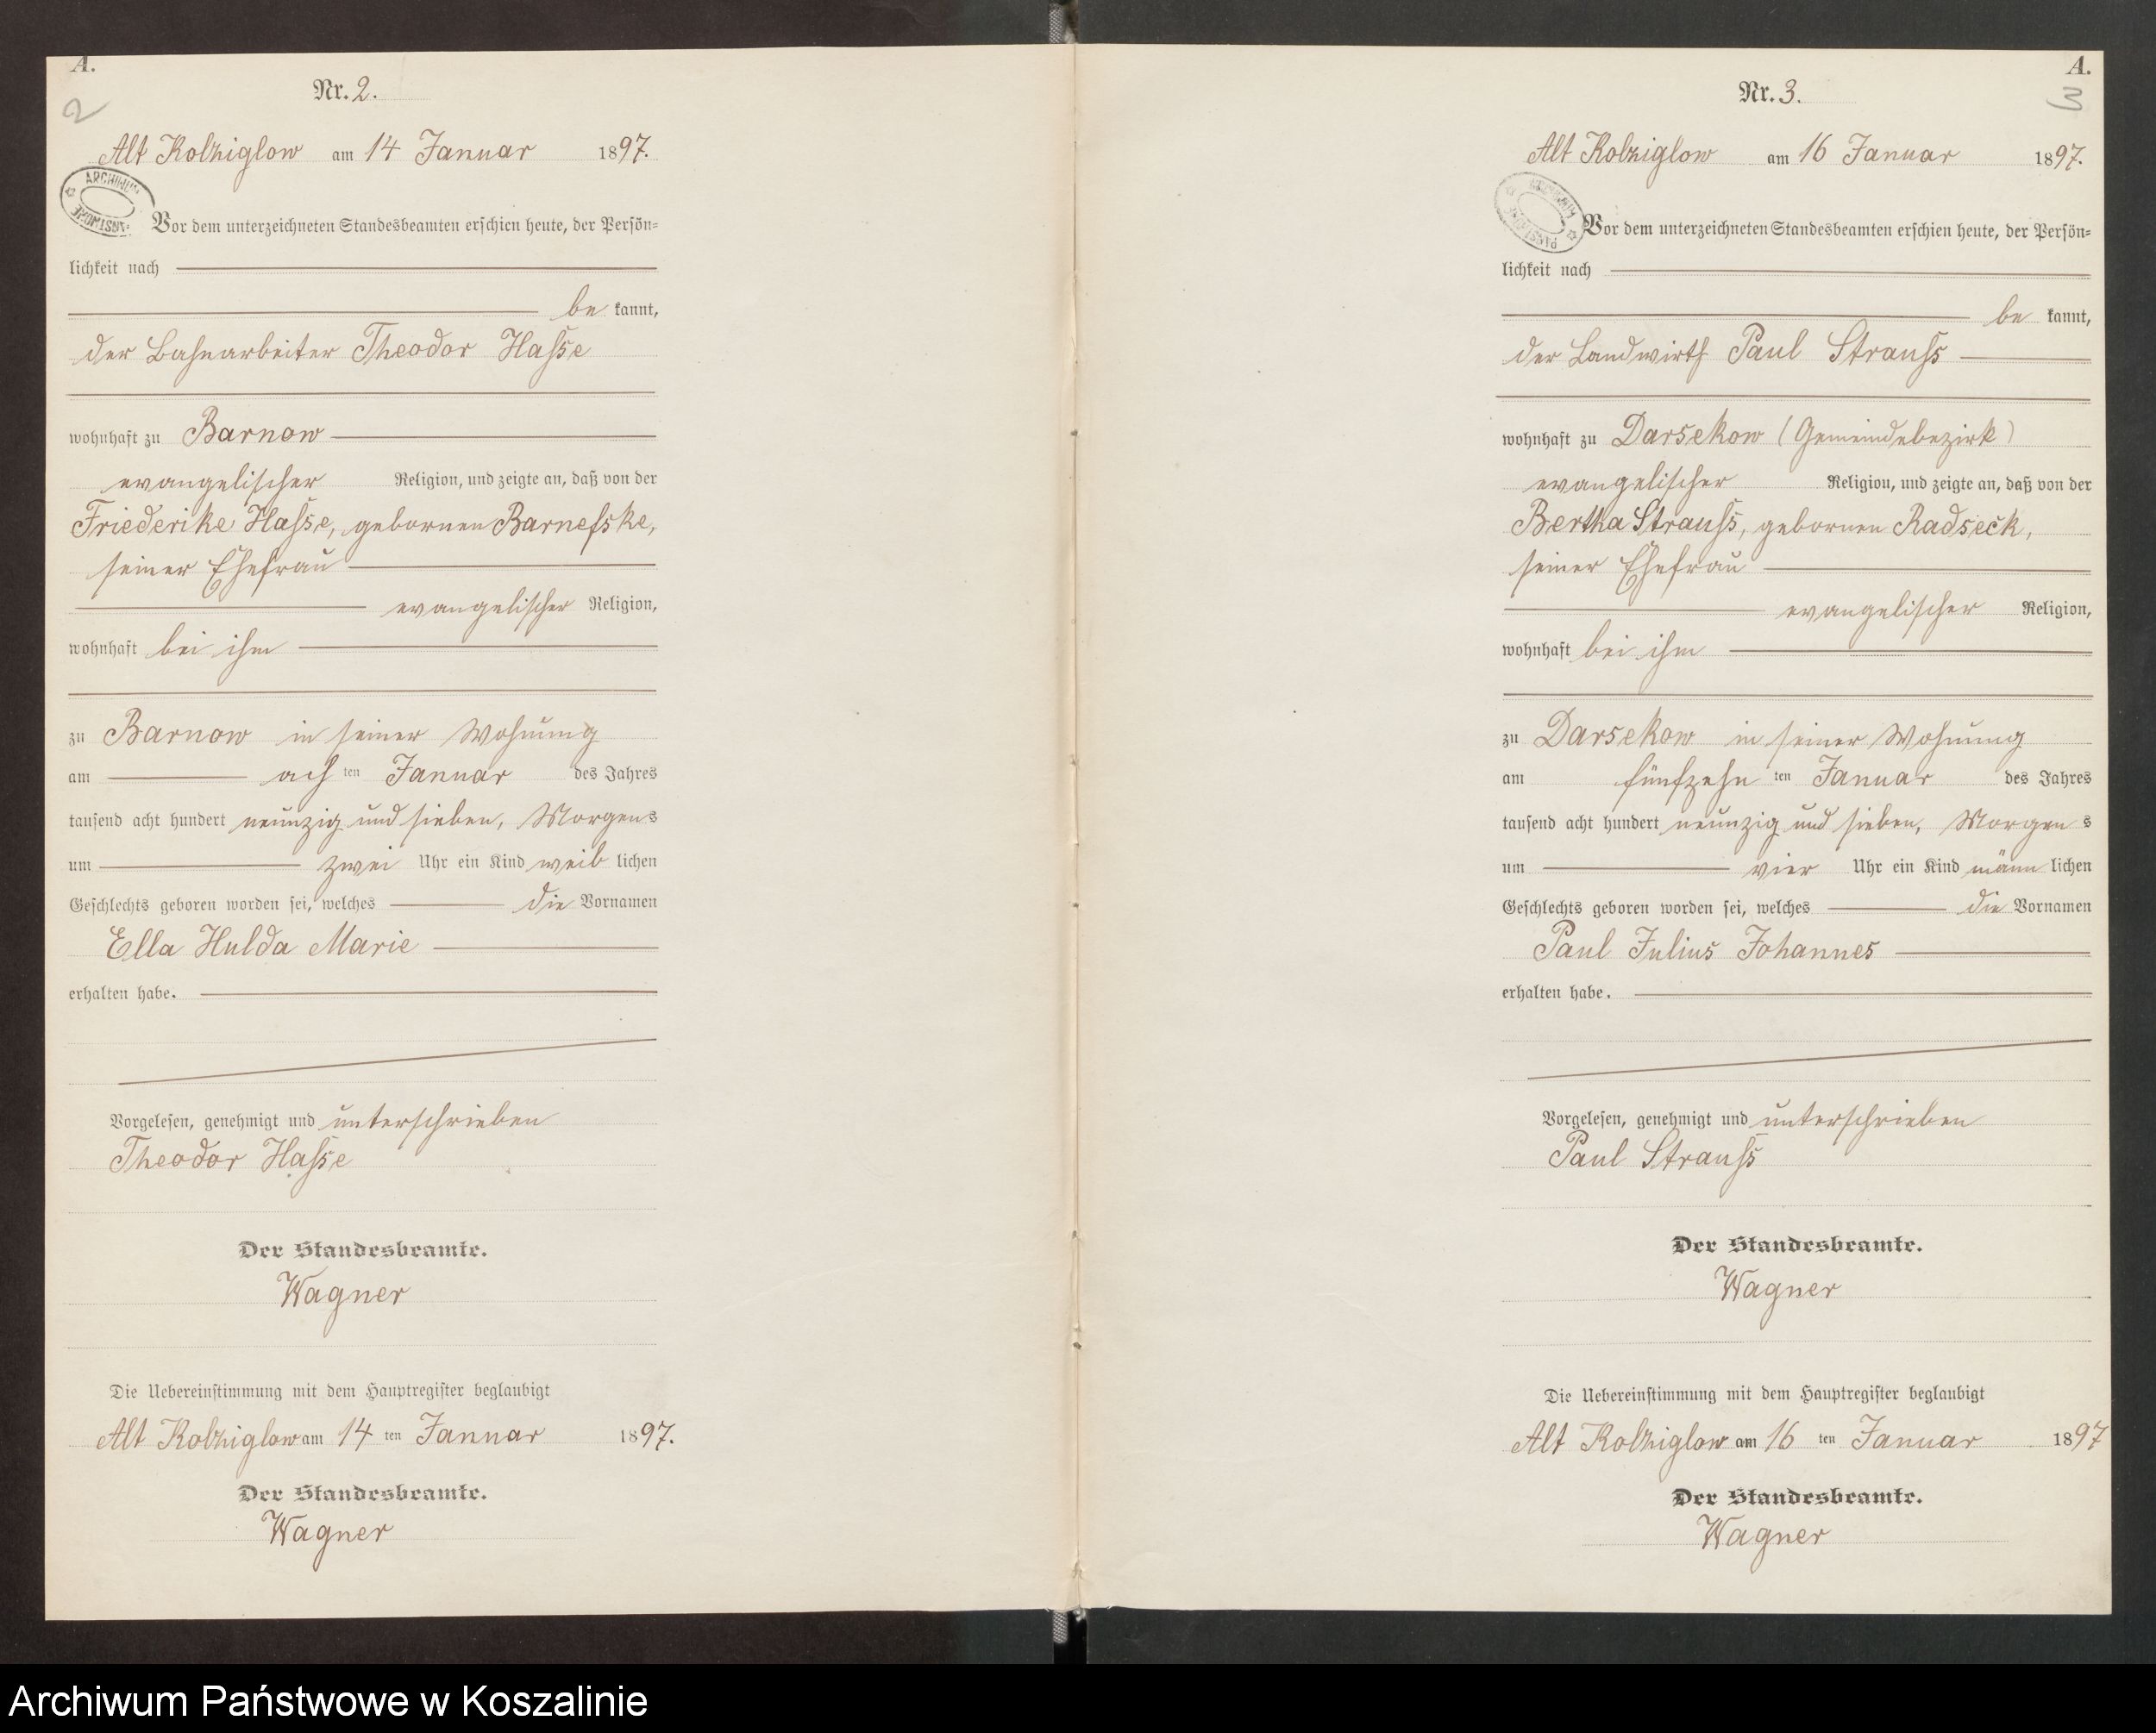 A.
2
Nr. 2.
Alt Kolziglow am 14 Januar 1897.
ARCHIWUM
Vor dem unterzeichneten Standesbeamten erschien heute, der Persön-
lichkeit nach
be kannt,
der Bahnarbeiter Theodor Hasse
wohnhaft zu Barnow
evangelischer Religion, und zeigte an, daß von der
Friederike Hasse, gebornen Barnefske,
seiner Ehefrau
evangelischer Religion,
wohnhaft bei ihm
zu Barnow in seiner Wohnung
am ach ten Januar des Jahres
tausend acht hundert neunzig und sieben, Morgens
um zwei Uhr ein Kind weib lichen
Geschlechts geboren worden sei, welches die Vornamen
Ella Hulda Marie
erhalten habe.
Vorgelesen, genehmigt und unterschrieben
Theodor Hasse
Der Standesbeamte.
Wagner
Die Uebereinstimmung mit dem Hauptregister beglaubigt
Alt Kolziglow am 14 ten Januar 1897.
Der Standesbeamte.
Wagner
A.
3
Nr. 3.
Alt Kolziglow am 16 Januar 1897.
Vor dem unterzeichneten Standesbeamten erschien heute, der Persön-
lichkeit nach
be kannt,
der Landwirth Paul Strauss
wohnhaft zu Darsekow (Gemeindebezirk)
evangelischer Religion, und zeigte an, daß von der
Bertha Strauss, gebornen Radseck,
seiner Ehefrau
evangelischer Religion,
wohnhaft bei ihm
zu Darsekow in seiner Wohnung
am fünfzehn ten Januar des Jahres
tausend acht hundert neunzig und sieben, Morgens
um vier Uhr ein Kind männ lichen
Geschlechts geboren worden sei, welches die Vornamen
Paul Julius Johannes
erhalten habe.
Vorgelesen, genehmigt und unterschrieben
Paul Strauss
Der Standesbeamte.
Wagner
Die Uebereinstimmung mit dem Hauptregister beglaubigt
Alt Kolziglow am 16 ten Januar 1897
Der Standesbeamte.
Wagner
Archiwum Państwowe w Koszalinie